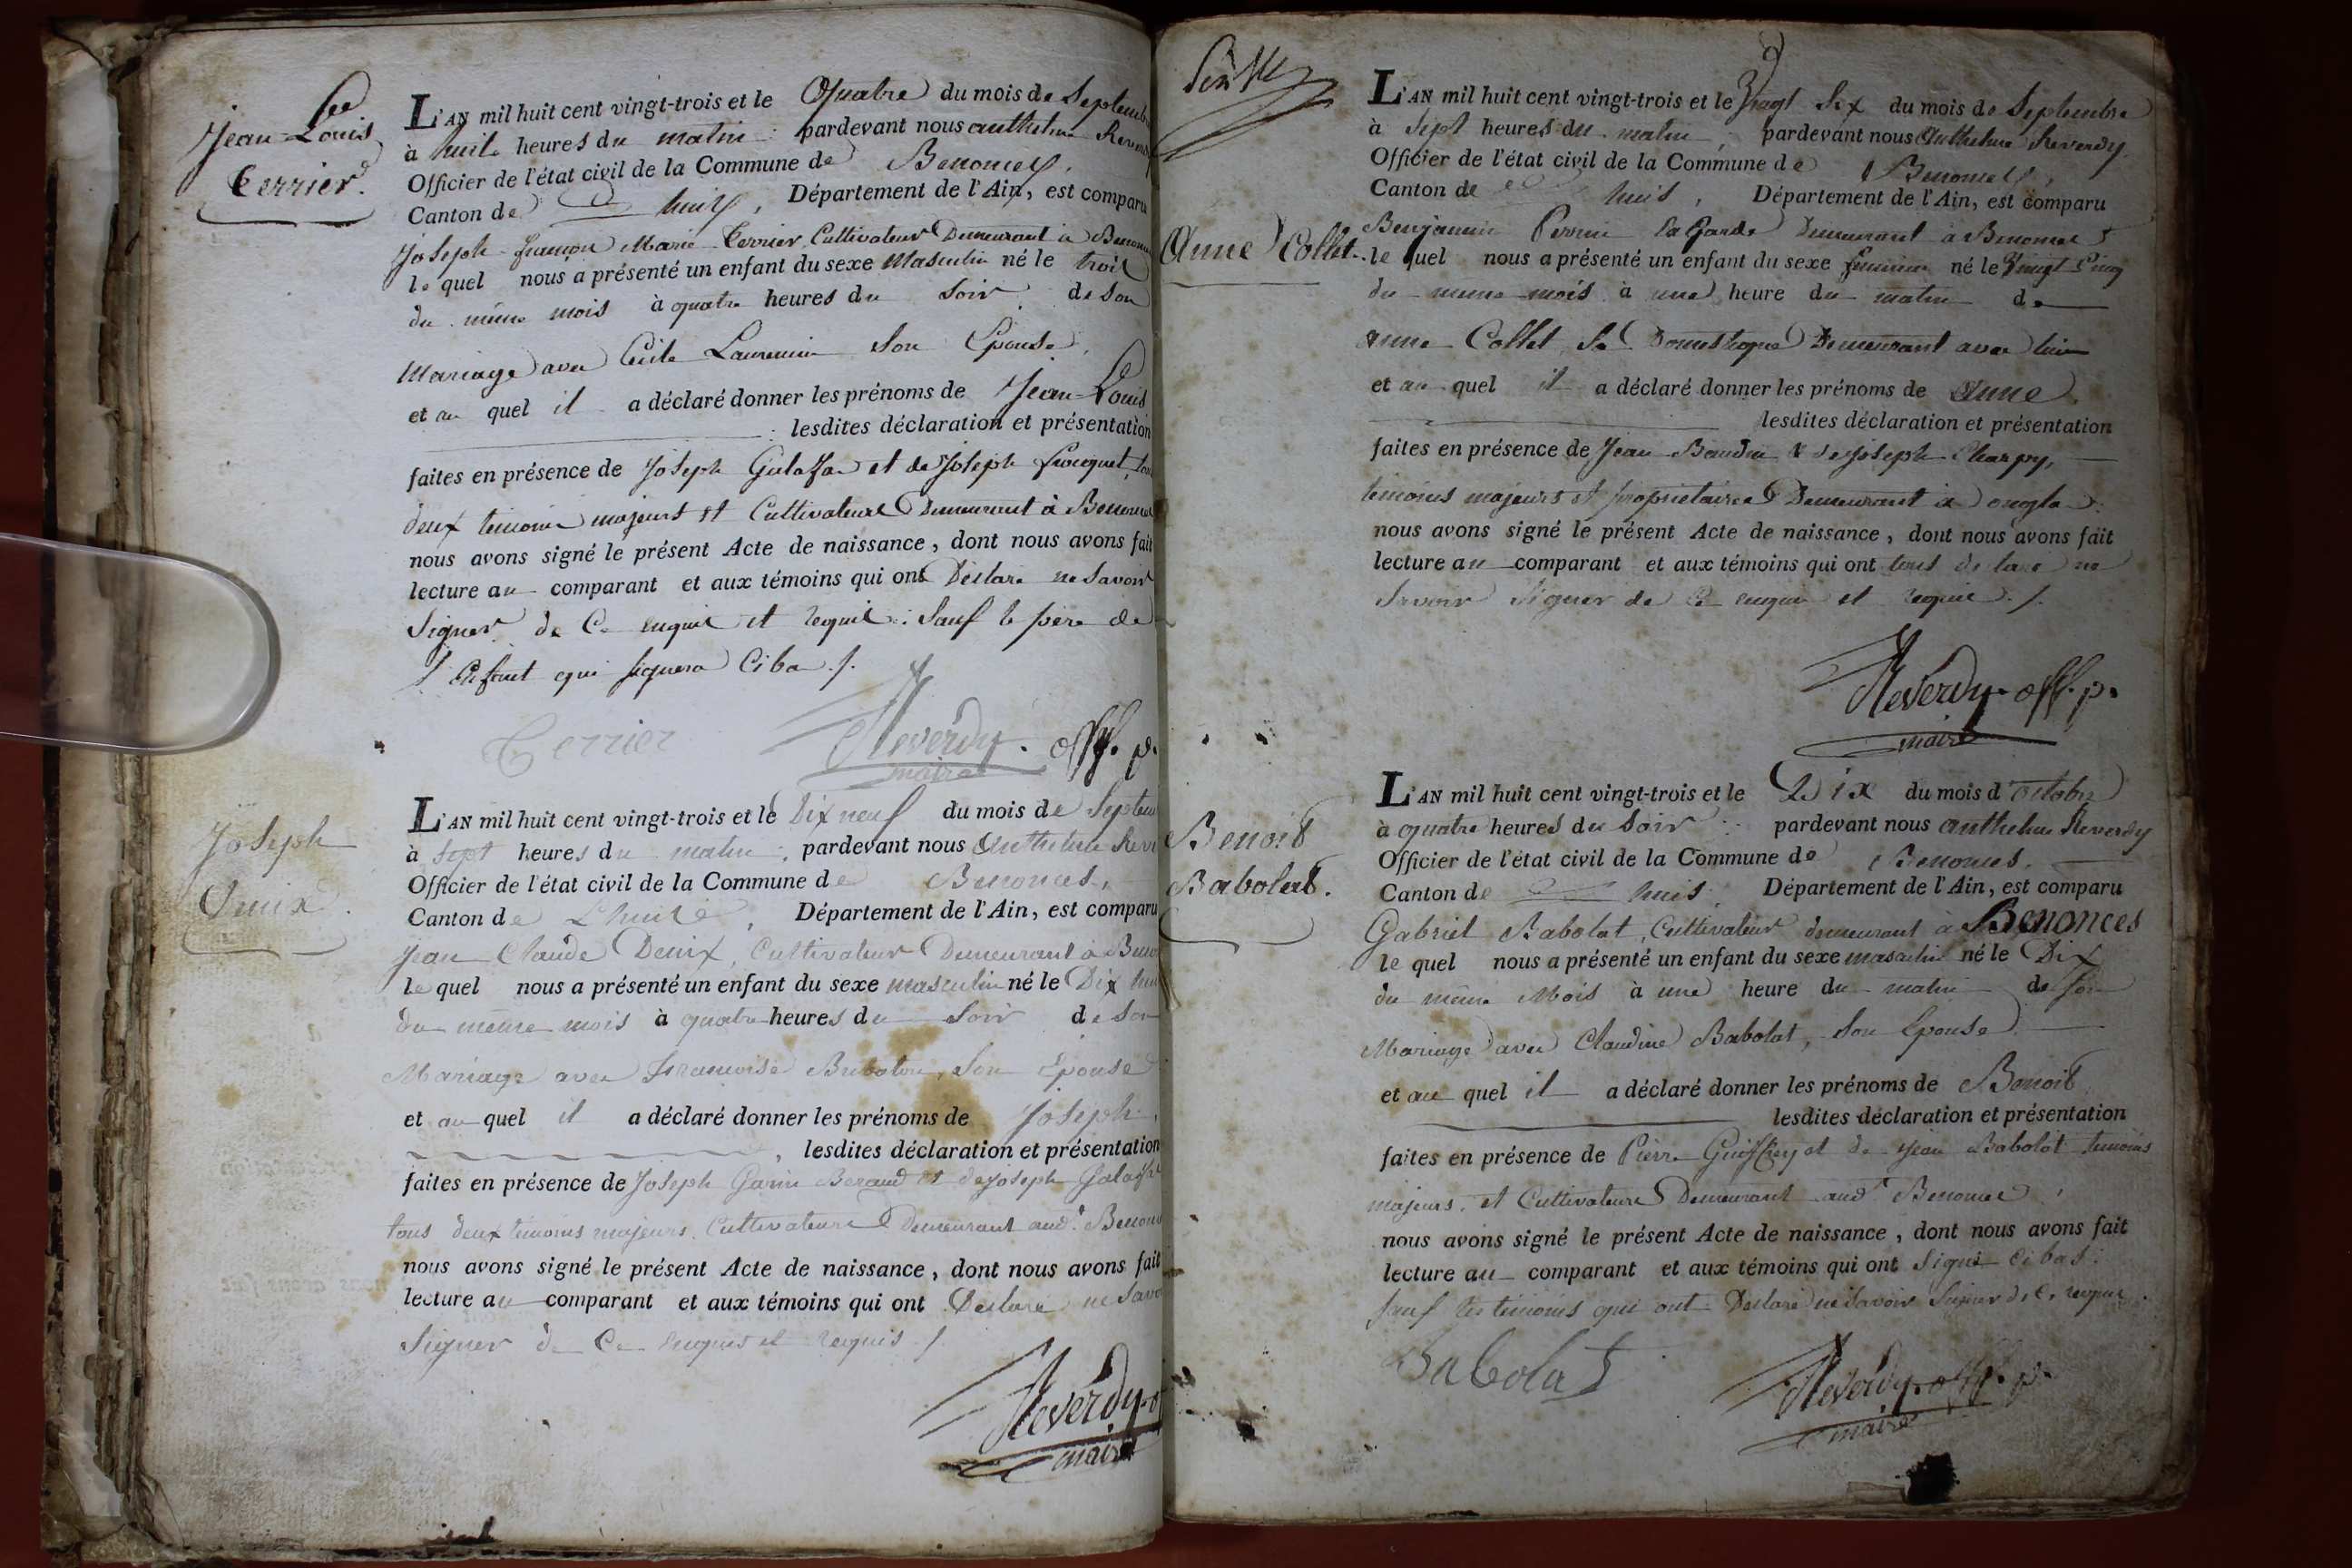 Jean-Louis
Terrier
L'AN mil huit cent vingt-trois et le Quatre du mois de Septembre
à huit heures du matin : pardevant nous anthelme
Officier de l'état civil de la Commune de Benonces,
Canton de Lhuis, Département de l'Ain, est comparu
Joseph Marie Terrier, Cultivateur Demeurant à
le quel nous a présenté un enfant du sexe Masculin né le trois
du même mois à quatre heures du Soir de son
Mariage avec Cécile son Epouse,
et au quel il a déclaré donner les prénoms de Jean-Louis
: lesdites déclaration et présentation
faites en présence de Joseph et de Joseph
deux temoins majeurs et Cultivateurs Demeurant à
nous avons signé le présent Acte de naissance, dont nous avons fait
lecture au comparant et aux témoins qui ont Déclaré ne Savoir
Signer de Ce enquis et requis : Sauf le père de
l'Enfant qui signera Ci bas ./.
Terrier Reverdy. off. p.
maire
Joseph
Denix
L'AN mil huit cent vingt-trois et le Dix neuf du mois de
à Sept heures du matin ; pardevant nous Anthelme
Officier de l'état civil de la Commune de Benonces,
Canton de Lhuis, Département de l'Ain, est comparu
Jean Claude Denix, Cultivateur Demeurant à
le quel nous a présenté un enfant du sexe masculin né le Dix
du même mois à quatre heures du Soir de Son
Mariage avec Françoise Son Epouse
et au quel il a déclaré donner les prénoms de Joseph
, lesdites déclaration et présentation
faites en présence de Joseph Garin Beraud et de Joseph
tous deux temoins majeurs, Cultivateurs Demeurant aud.t
nous avons signé le présent Acte de naissance, dont nous avons fait
lecture au comparant et aux témoins qui ont Déclaré ne
Signer de Ce enquis et requis ./.
Reverdy
maire
Anne Collet
L'AN mil huit cent vingt-trois et le Vingt Six du mois de Septembre
à Sept heures du matin ; pardevant nous Anthelme Reverdy
Officier de l'état civil de la Commune de Benonces,
Canton de Lhuis, Département de l'Ain, est comparu
Benjamin Perrin la Garde Demeurant à Benonces
le quel nous a présenté un enfant du sexe feminin né le Vingt Cinq
du meme mois à une heure du matin de
anne Collet Sa Domestique Demeurant avec lui
et au quel il a déclaré donner les prénoms de Anne
lesdites déclaration et présentation
faites en présence de Jean Baudin & de Joseph Charpy,
témoins majeurs et propriétaires Demeurant à
nous avons signé le présent Acte de naissance, dont nous avons fait
lecture au comparant et aux témoins qui ont tous déclaré ne
Savoir Signer de Ce enquis et requis ./.
Reverdy. off. p.
maire
Benoit
Babolat.
L'AN mil huit cent vingt-trois et le Dix du mois d'octobre
à quatre heures du Soir : pardevant nous anthelme Reverdy
Officier de l'état civil de la Commune de Benonces.
Canton de Lhuis, Département de l'Ain, est comparu
Gabriel Babolat, Cultivateur demeurant à Benonces
le quel nous a présenté un enfant du sexe masculin né le Dix
du même Mois à une heure du matin de son
Mariage avec Claudine Babolat, son Epouse
et au quel il a déclaré donner les prénoms de Benoit
lesdites déclaration et présentation
faites en présence de Pierre et de Jean Babolat temoins
majeurs, et Cultivateurs Demeurant aud.t Benonces
nous avons signé le présent Acte de naissance, dont nous avons fait
lecture au comparant et aux témoins qui ont Signé Ci bas :
Sauf les témoins qui ont Déclaré ne savoir Signer de Ce requis.
Babolat Reverdy. off. p.
maire